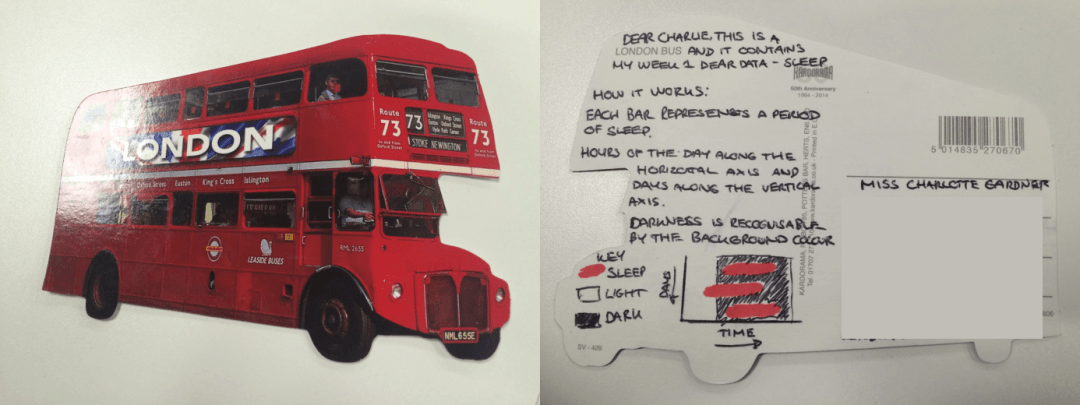 LONDON
Route
73
73
Islington Kings Cross
Euston Oxford Street
Hyde Park Corner
STOKE NEWINGTON
Route
73
to and from
Oxford Street
Oxford Street Euston King's Cross Islington
RML 2655
LEASIDE BUSES
NML655E
DEAR CHARLIE, THIS IS A
LONDON BUS AND IT CONTAINS
MY WEEK 1 DEAR DATA - SLEEP
KARDORAMA
50th Anniversary
1964 - 2014
HOW IT WORKS:
EACH BAR REPRESENTS A PERIOD
OF SLEEP.
HOURS OF THE DAY ALONG THE
HORIZOTAL AXIS AND
DAYS ALONG THE VERTICAL
AXIS.
DARKNESS IS RECOGNISABLE
BY THE BACKGROUND COLOUR
KEY
SLEEP
LIGHT
DARK
DAYS
TIME
5 014835 270670
MISS CHARLOTTE GARDNER
SV - 428